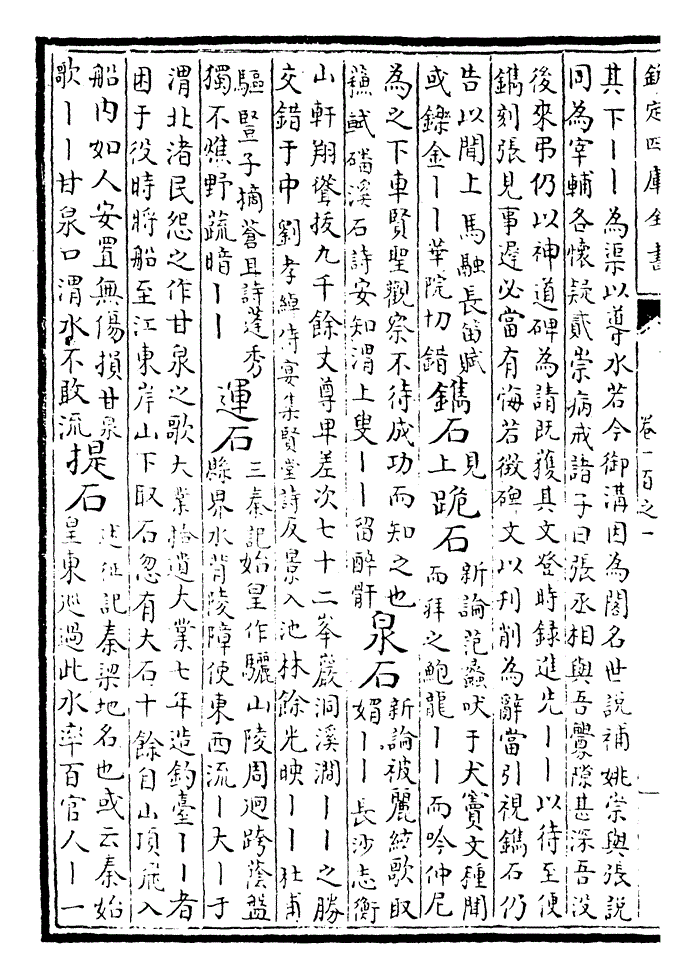 欽定四庫全書
卷一百之一
其下丨丨為渠以導水若今御溝因為閣名世說補姚崇與張說
同為宰輔各懷疑貳崇病戒諸子曰張丞相與吾釁隙甚深吾沒
後來弔仍以神道碑為請既獲其文登時録進先丨丨以待至便
鐫刻張見事遲必當有悔若徵碑文以刊削為辭當引視鐫石仍
告以聞上馬融長笛賦
或鑠金丨丨華院切錯
鐫石
見上
跪石
新論范蠡吠于犬竇文種聞
而拜之鮑龍丨丨而吟仲尼
為之下車賢聖觀察不待成功而知之也
蘓軾磻溪石詩安知渭上叟丨丨留醉骭
泉石
新論被麗絃歌取
媚丨丨長沙志衡
山軒翔聳拔九千餘丈尊卑差次七十二峯巖洞溪澗丨丨之勝
交錯于中劉孝綽侍宴集賢堂詩反景入池林餘光映丨丨杜甫
驅豎子摘蒼耳詩蓬秀
獨不燋野蔬暗丨丨
運石
三秦記始皇作驪山陵周廻跨蔭盤
縣界水背陵障使東西流丨大丨于
渭北渚民怨之作甘泉之歌大業拾遺大業七年造釣臺丨丨者
困于役時將船至江東岸山下取石忽有大石十餘自山頂飛入
船内如人安置無傷損甘泉
歌丨丨甘泉口渭水不敢流
提石
述征記秦梁地名也或云秦始
皇東巡過此水率百官人丨一